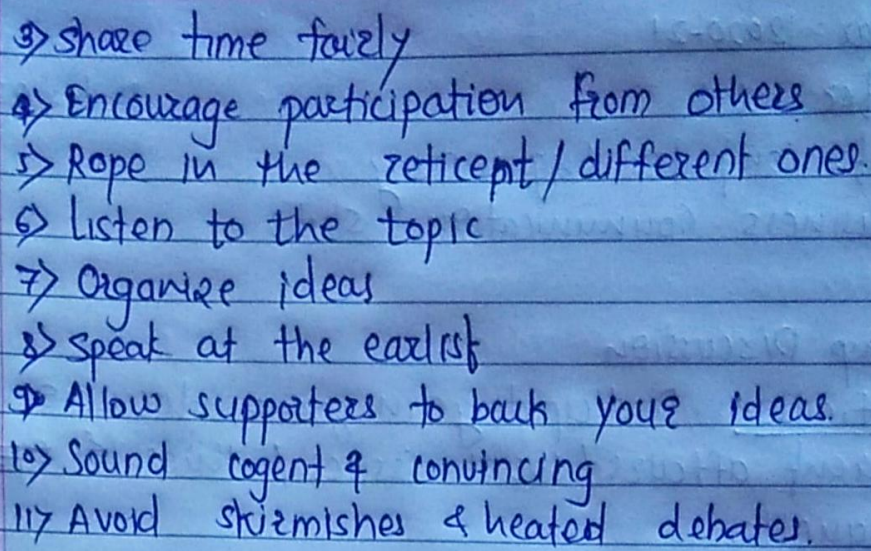 3) Share time fairly
4) Encourage participation from others
5) Rope in the reticent / different ones.
6) Listen to the topic
7) Organize ideas
8) Speak at the earlist
9) Allow supporters to back your ideas.
10) Sound cogent & convincing
11) Avoid skirmishes & heated debates.